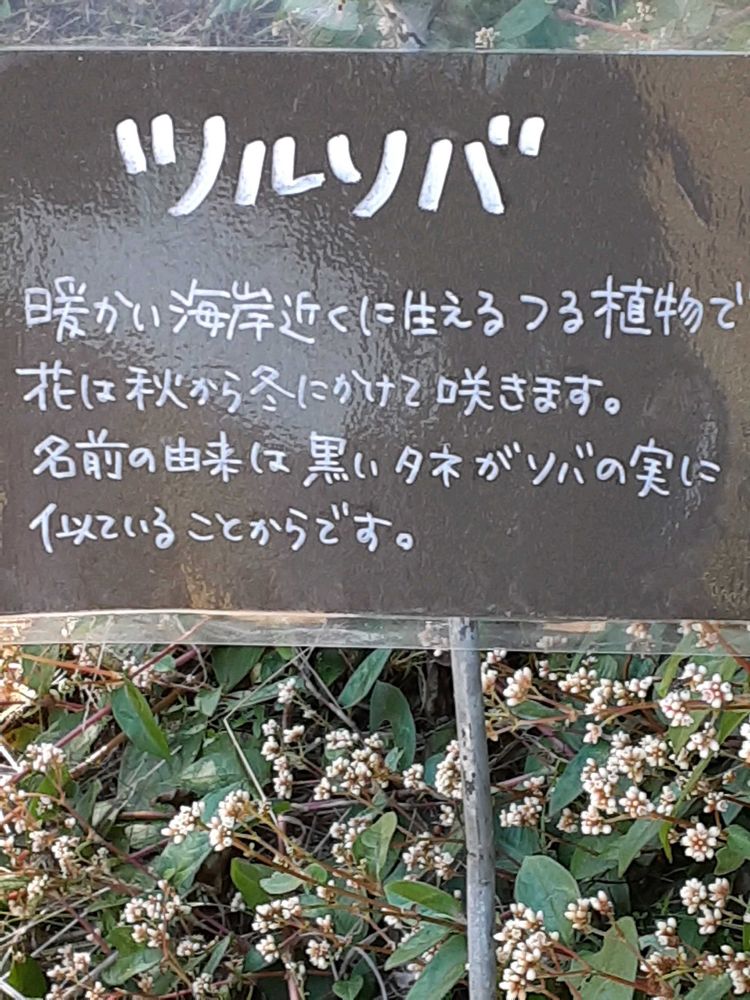 ツルソバ
暖かい海岸近くに生えるつる植物で
花は秋から冬にかけて咲きます。
名前の由来は黒いタネがソバの実に
似ていることからです。